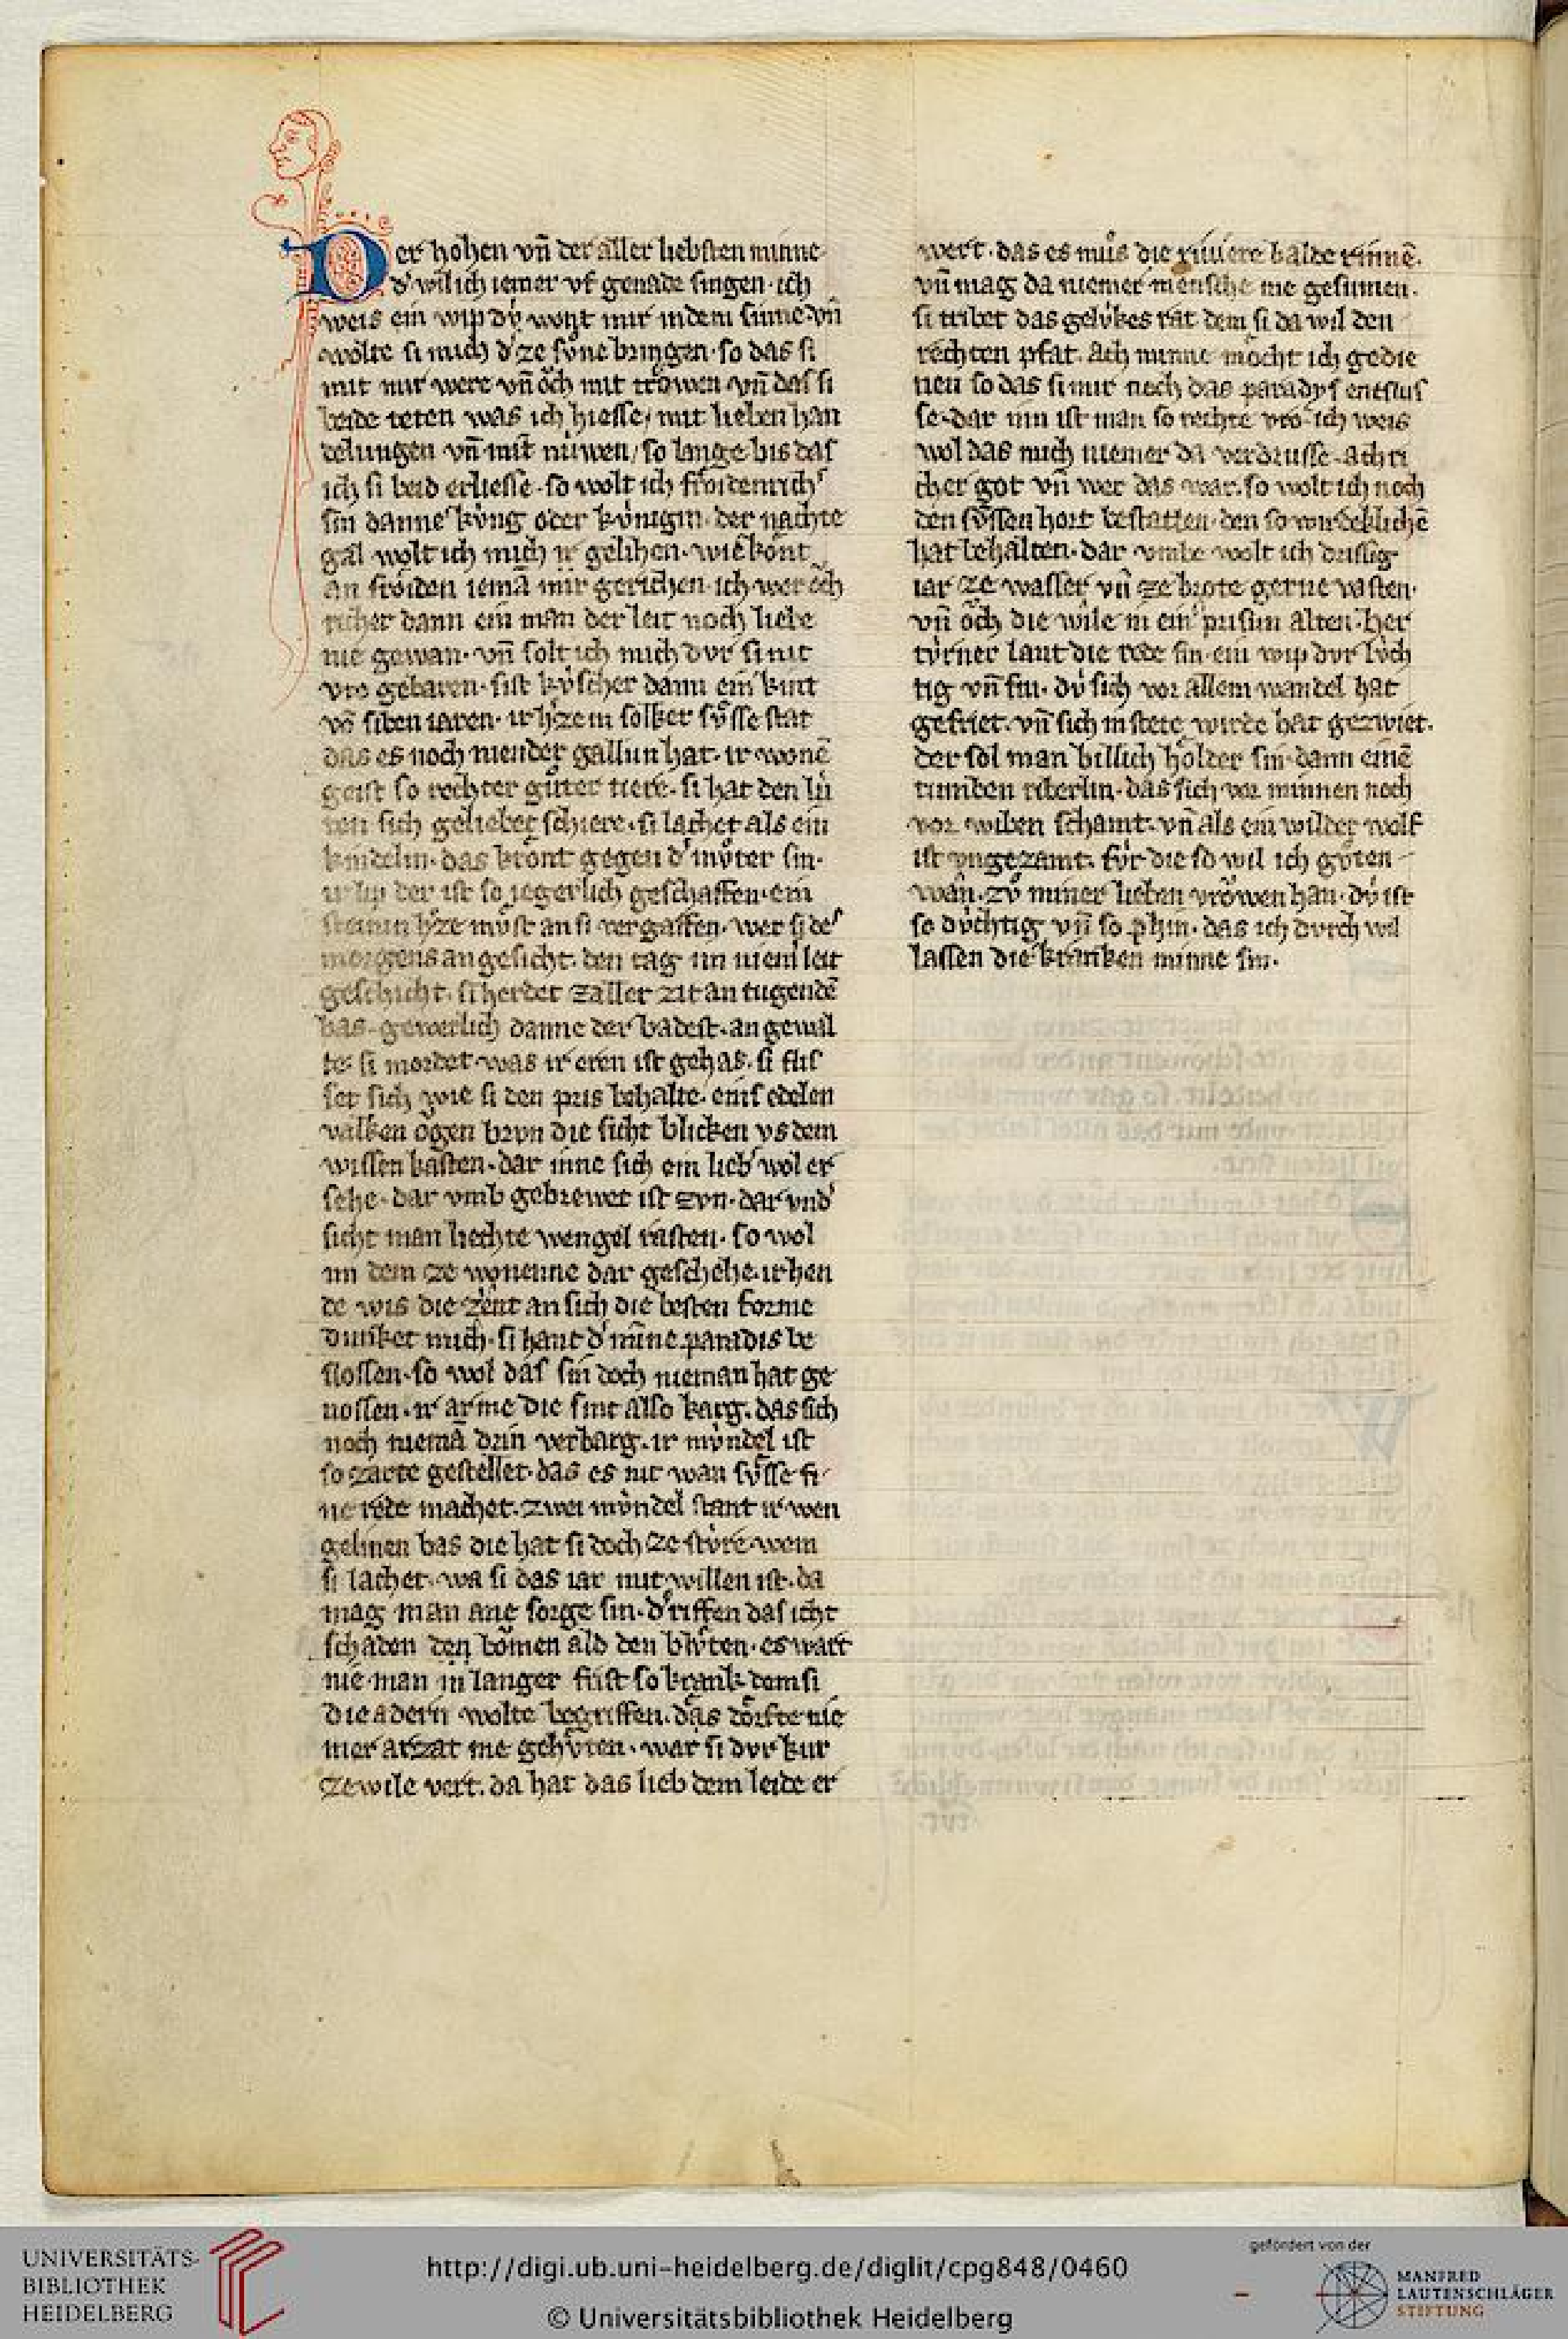 Der hohen vn̄ der aller liebsten minne
d' wil ich iemer vf genade singen · ich
weis ein wip dv́ wont mir in dem sinne · vn̄
wolte si mich d' ze sv́ne bringen · so das si
mit mir were vn̄ o̍ch mit trowen · vn̄ das si
beide teten was ich hiesse / mit lieben han
delungen vn̄ mit nu̍wen / so lange bis das
ich si beid erliesse · so wolt ich fro̍idenrich'
sin danne kv́ng oder kv́nigin · der nachte
gal wolt ich mich ir gelihen · wie kont
an fro̍iden iemā mir gerichen · ich wer o̍ch
richer dann ein man der leit noch liebe
nie gewan · vn̄ solt ich mich dvr si nit
vro gebaren · sist kv́scher dann ein kint
vō siben iaren · ir h'ze in solker sv̊sse stat
das es noch niender gallun hat · ir wonē
geist so rechter gu̍ter tiere · si hat den lu̍
ten sich geliebet schiere · si lachet als ein
kindelin · das kront gegen d' mv̊ter sin ·
ir lip der ist so iegerlich geschaffen · ein
steinin h'ze mv̊st an si vergaffen · wer si des
morgens angesicht · den tag im niem' leit
geschicht · si herdet zaller zit an tugendē
bas · gewerlich danne der badest · an gewal
te · si mordet was ir eren ist gehas · si flis
set sich wie si den pris behalte · eins edelen
valken o̍gen brvn die sicht blicken vs dem
wissen kasten · dar inne sich ein lieb wol er
sehe · dar vmb gebrewet ist zvn · dar vnd'
sicht man liechte wengel rasten · so wol
im dem ze wonenne dar geschehe · ir hen
de wis die zent an sich die besten forme
dunket mich · si hant d' mīne paradis be
slossen · so wol das sin doch nieman hat ge
nossen · ir arme die sint also karg · das sich
noch niemā drin verbarg · ir mv́ndel ist
so zarte gestellet · das es nit wan sv̊sse fi
ne rede machet · zwei mv́ndel stant ir wen
gelinen bas die hat si doch ze stv́re · wem
si lachet · wa si das iar mit willen ist · da
mag man ane sorge sin · d' riffen das icht
schaden den bo̍men ald den blv̊ten · es wart
nie man in langer frist so krank dem si
die adern wolte begriffen · das do̍rfte nie
mer arzat me gehv̊ten · war si dvr kur
ze wile vert · da hat das lieb dem leide er
wert · das es mu̍s die riuiere balde rinnē ·
vn̄ mag da niemer mensche me gesinnen ·
si tribet das gelv́kes rat dem si da wil den
rechten pfat · ach minne mo̍cht ich gedie
nen so das si mir noch das paradys entslus
se · dar inn ist man so rechte vro · ich weis
wol das mich niemer da verdrusse · ach ri
cher got vn̄ wer das war · so wolt ich noch
den sv̊ssen hort bestatten · den so wirdeklichē
hat behalten · dar vmbe wolt ich drissig
iar ze wasser vn̄ ze brote gerne vasten ·
vn̄ o̍ch die wile in ein' prisun alten · her
tv́rner lant die rede sin · ein wip dvr lv́ch
tig vn̄ fin · dv́ sich vor allem wandel hat
gefriet · vn̄ sich in stete wirde hat gezwiet ·
der sol man billich holder sin · dann einē
tumben riberlin · das sich vor minnen noch
vor wiben schamt · vn̄ als ein wilder wolf
ist vngezamt · fv́r die so wil ich gv̊ten
wan · zv̊ miner lieben vro̍wen han · dv́ ist
so dv́chtig vn̄ so phin · das ich dvrch wil
lassen die kranken minne sin ·
UNIVERSITÄTS-
BIBLIOTHEK
HEIDELBERG
http://digi.ub.uni-heidelberg.de/diglit/cpg848/0460
© Universitätsbibliothek Heidelberg
gefördert von der
MANFRED
LAUTENSCHLÄGER
STIFTUNG